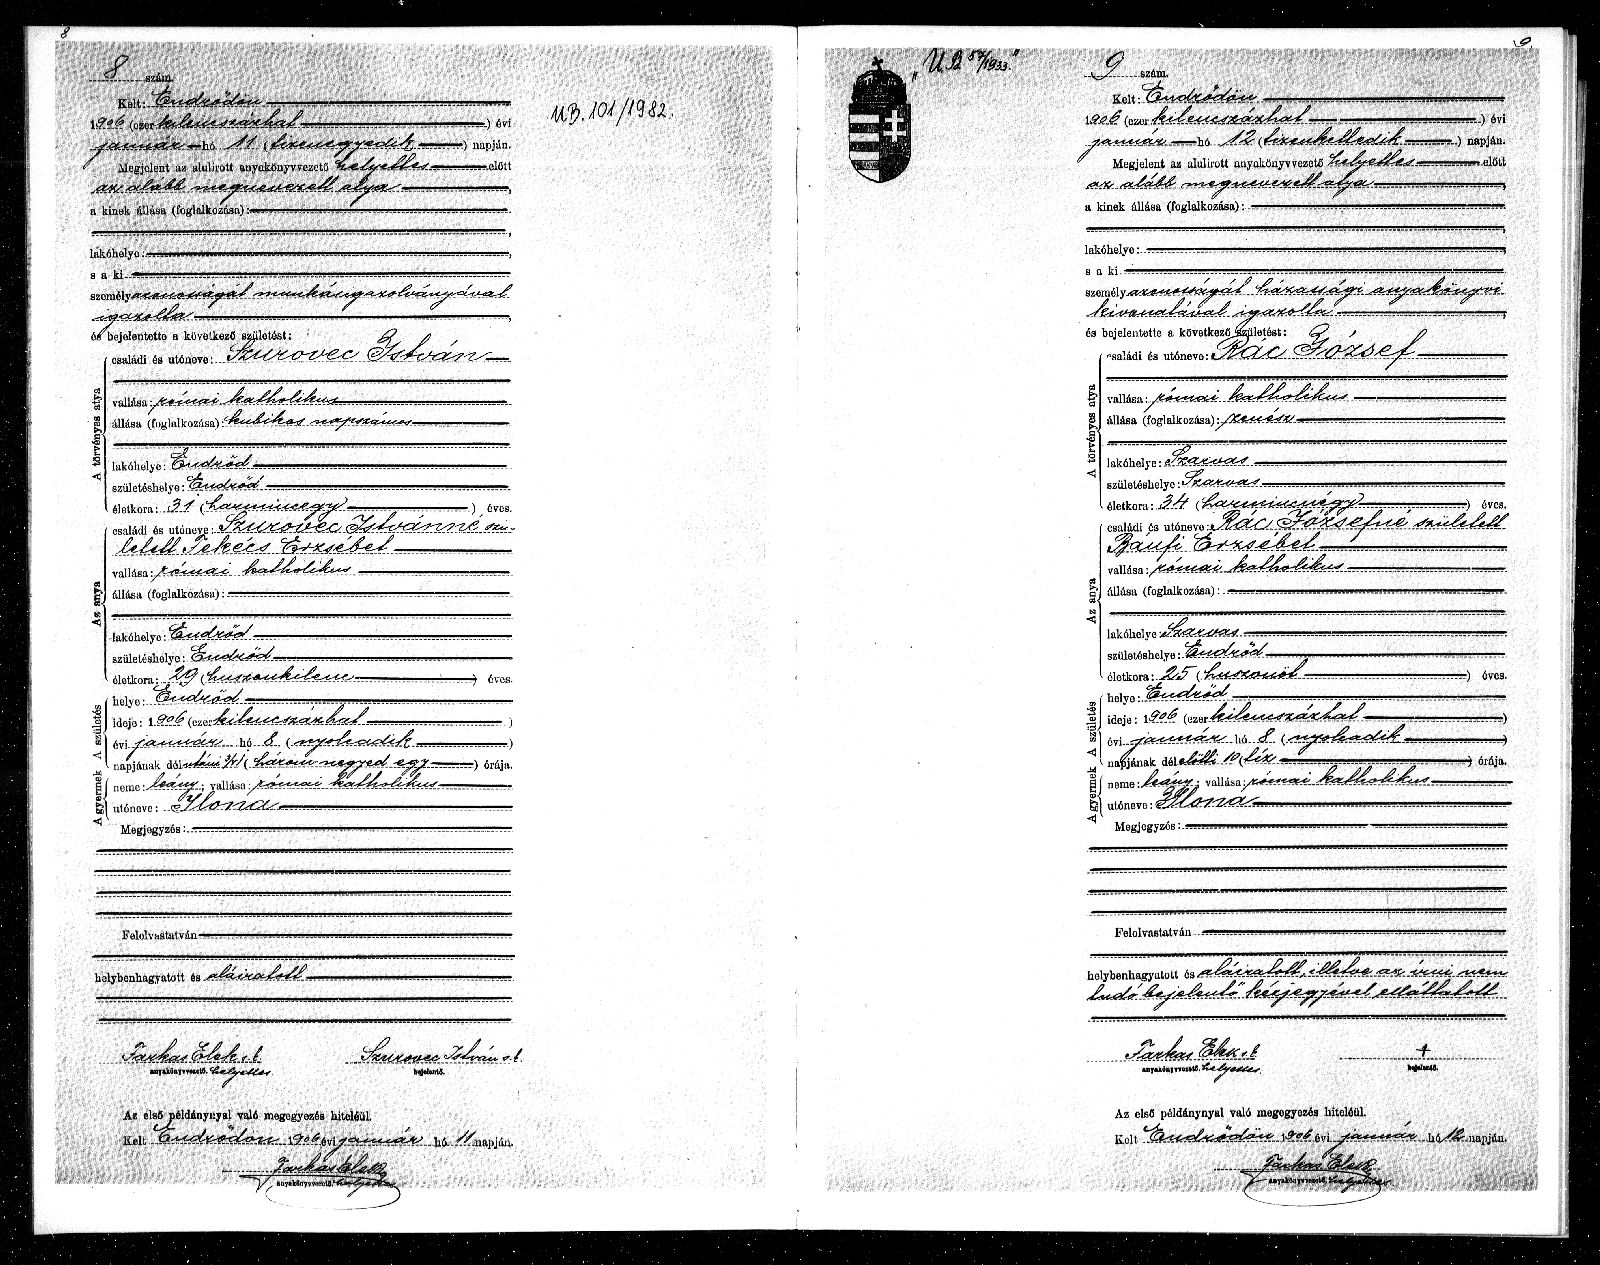 8
8 szám.
Kelt: Endrődön
1906 (ezer kilencszázhat ) évi
január hó 11 (tizenegyedik ) napján.
Megjelent az alulirott anyakönyvvezető helyettes előtt
az alább megnevezett atya ,
a kinek állása (foglalkozása):
,
lakóhelye: ,
s a ki
személyazonosságát munkásigazolványával
igazolta ,
és bejelentette a következő születést:
A törvényes atya
családi és utóneve: Szurovec István
vallása: római katholikus
állása (foglalkozása): kubikos napszámos
lakóhelye: Endrőd
születéshelye: Endrőd
életkora: 31 (harmincegy ) éves.
Az anya
családi és utóneve: Szurovec Istvánné, szü-
letett Tekécs Erzsébet
vallása: római katholikus
állása (foglalkozása):
lakóhelye: Endrőd
születéshelye: Endrőd
életkora: 29 (huszonkilenc ) éves.
A születés
helye: Endrőd
ideje: 1906 (ezer kilencszázhat )
évi január hó 8 (nyolcadik )
napjának délutáni 3/41 (három negyed egy ) órája.
A gyermek
neme: leány; vallása: római katholikus
utóneve: Ilona
Megjegyzés:
Felolvastatván
helybenhagyatott és aláiratott
Farkas Elek s. k. Szurovec István s. k.
anyakönyvvezető. helyettes bejelentő.
Az első példánynyal való megegyezés hiteléül.
Kelt Endrődön 1906 évi január hó 11 napján.
Farkas Elek
anyakönyvvezető. helyettes
UB. 101/1982.
9
„UB 57/1933."
9 szám.
Kelt: Endrődön
1906 (ezer kilencszázhat ) évi
január hó 12 (tizenkettedik ) napján.
Megjelent az alulirott anyakönyvvezető helyettes előtt
az alább megnevezett atya ,
a kinek állása (foglalkozása):
,
lakóhelye: ,
s a ki
személyazonosságát házassági anyakönyvi
kivonatával igazolta ,
és bejelentette a következő születést:
A törvényes atya
családi és utóneve: Rác József
vallása: római katholikus
állása (foglalkozása): zenész
lakóhelye: Szarvas
születéshelye: Szarvas
életkora: 34 (harmincnégy ) éves.
Az anya
családi és utóneve: Rác Józsefné született
Bánfi Erzsébet
vallása: római katholikus
állása (foglalkozása):
lakóhelye Szarvas
születéshelye: Endrőd
életkora: 25 (huszonöt ) éves.
A születés
helye: Endrőd
ideje: 1906 (ezer kilencszázhat )
évi január hó 8 (nyolcadik )
napjának délelőtti 10 (tíz ) órája.
A gyermek
neme: leány; vallása: római katholikus
utóneve: Ilona
Megjegyzés:
Felolvastatván
helybenhagyatott és aláiratott, illetve az írni nem
tudó bejelentő kézjegyével elláttatott
Farkas Elek s. k. +
anyakönyvvezető. helyettes. bejelentő.
Az első példánynyal való megegyezés hiteléül.
Kelt Endrődön 1906 évi január hó 12 napján.
Farkas Elek
anyakönyvvezető. helyettes